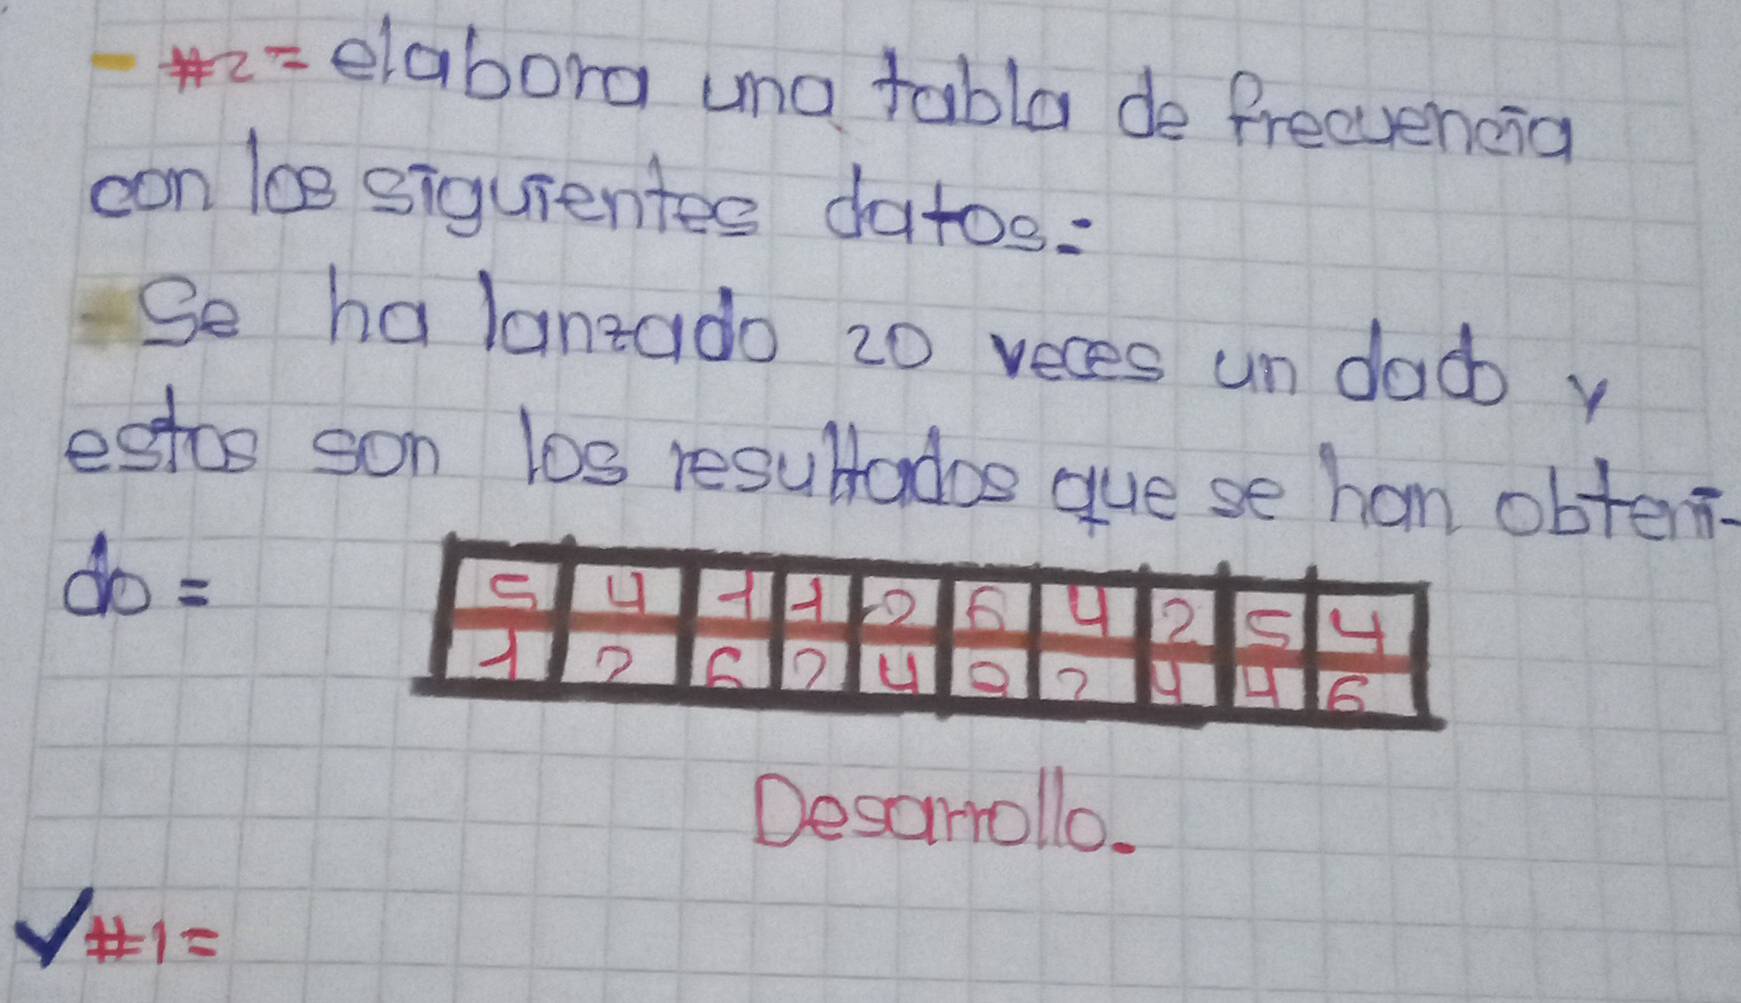 - #2= elabora una tabla de frecuencia
con los siguientes datos:
Se ha lanzado 20 veces un dado y
estos son los resultados que se han obteni-
do=
5 4 1 1 2 6 4 2 5 4
1 2 6 2 4 2 2 4 4 6
Desarrollo.
✓#1=